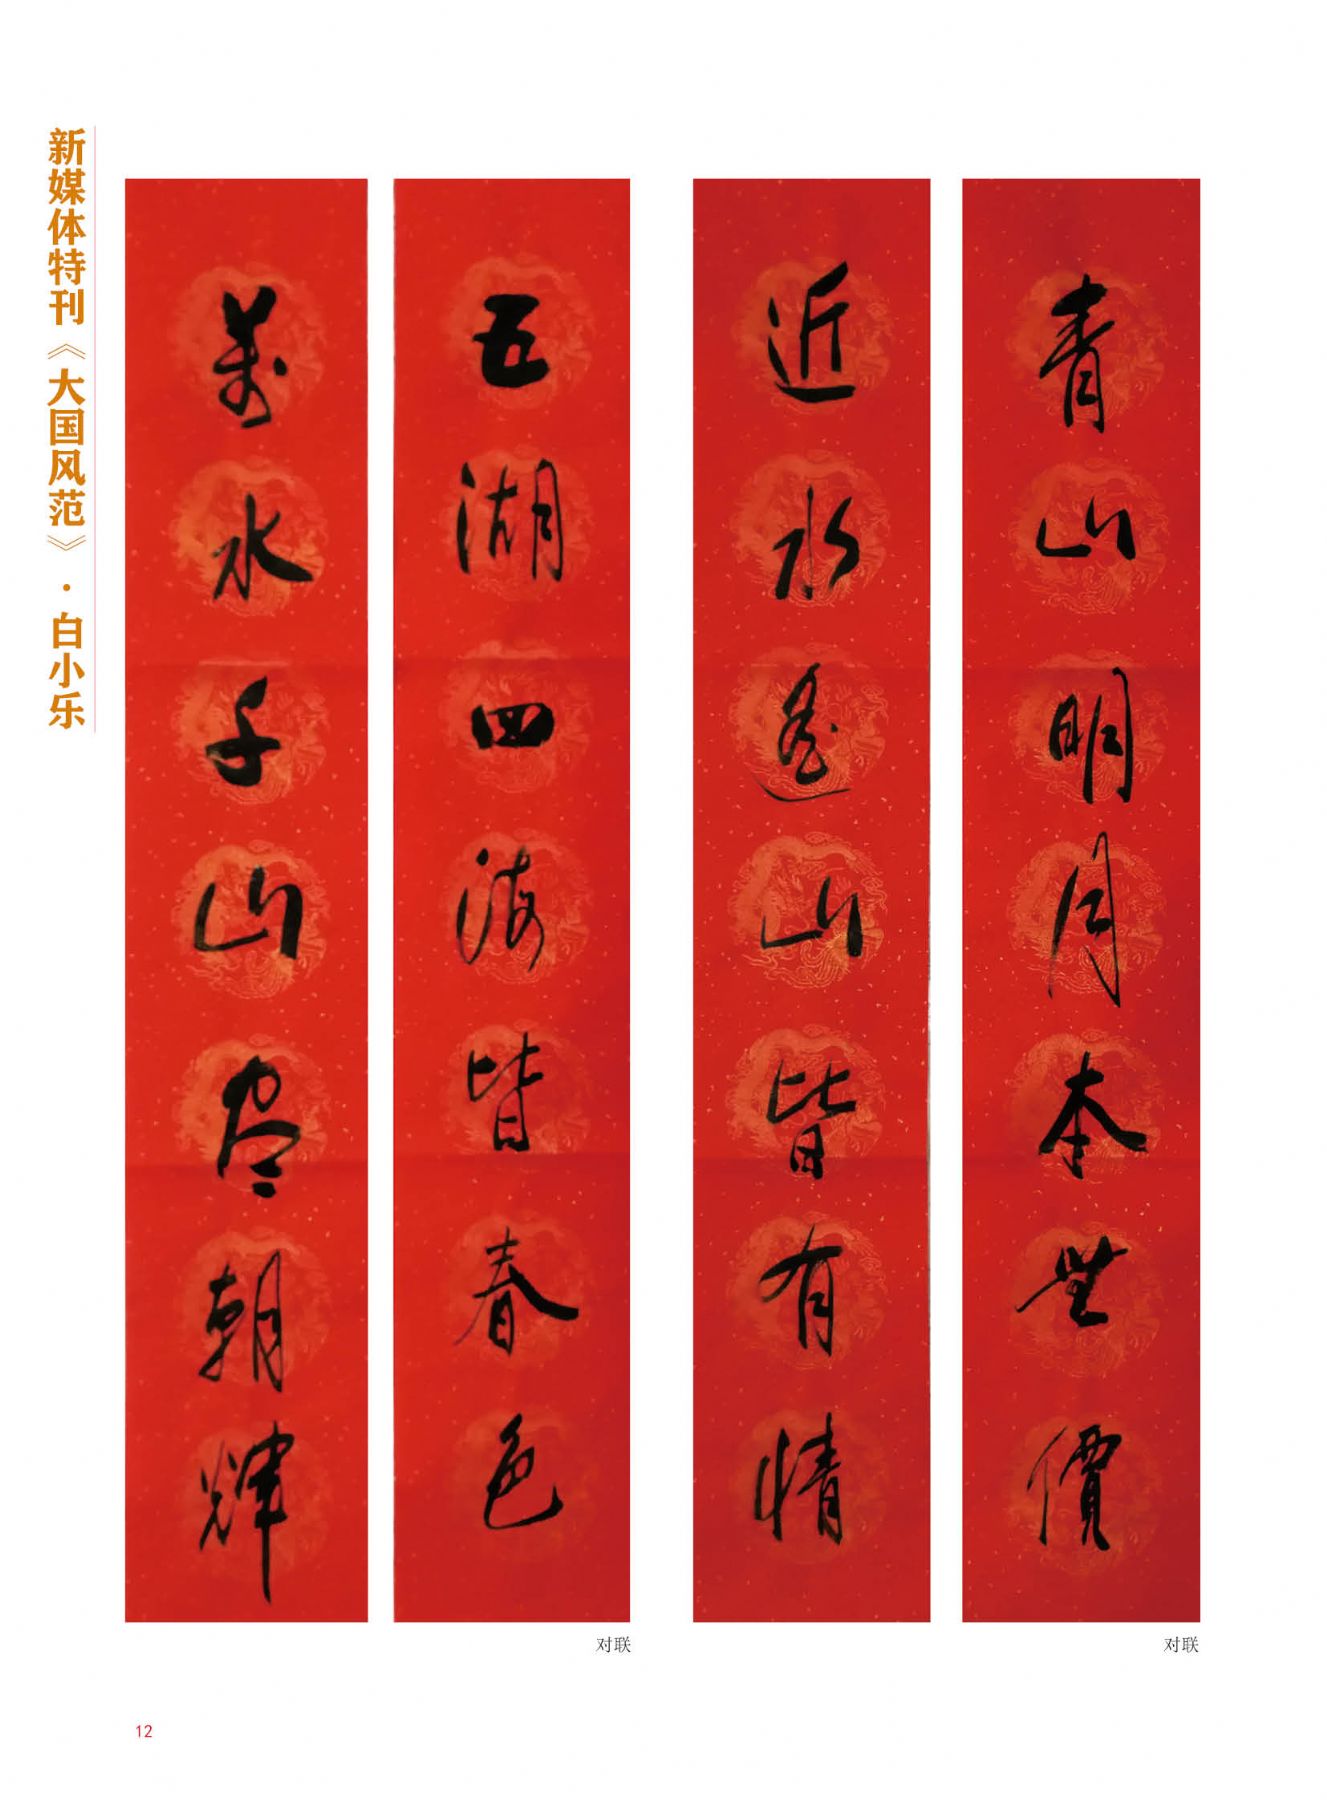 新媒体特刊《大国风范》·白小乐
青山明月本無價
近水遙山皆有情
对联
五湖四海皆春色
萬水千山尽朝輝
对联
12